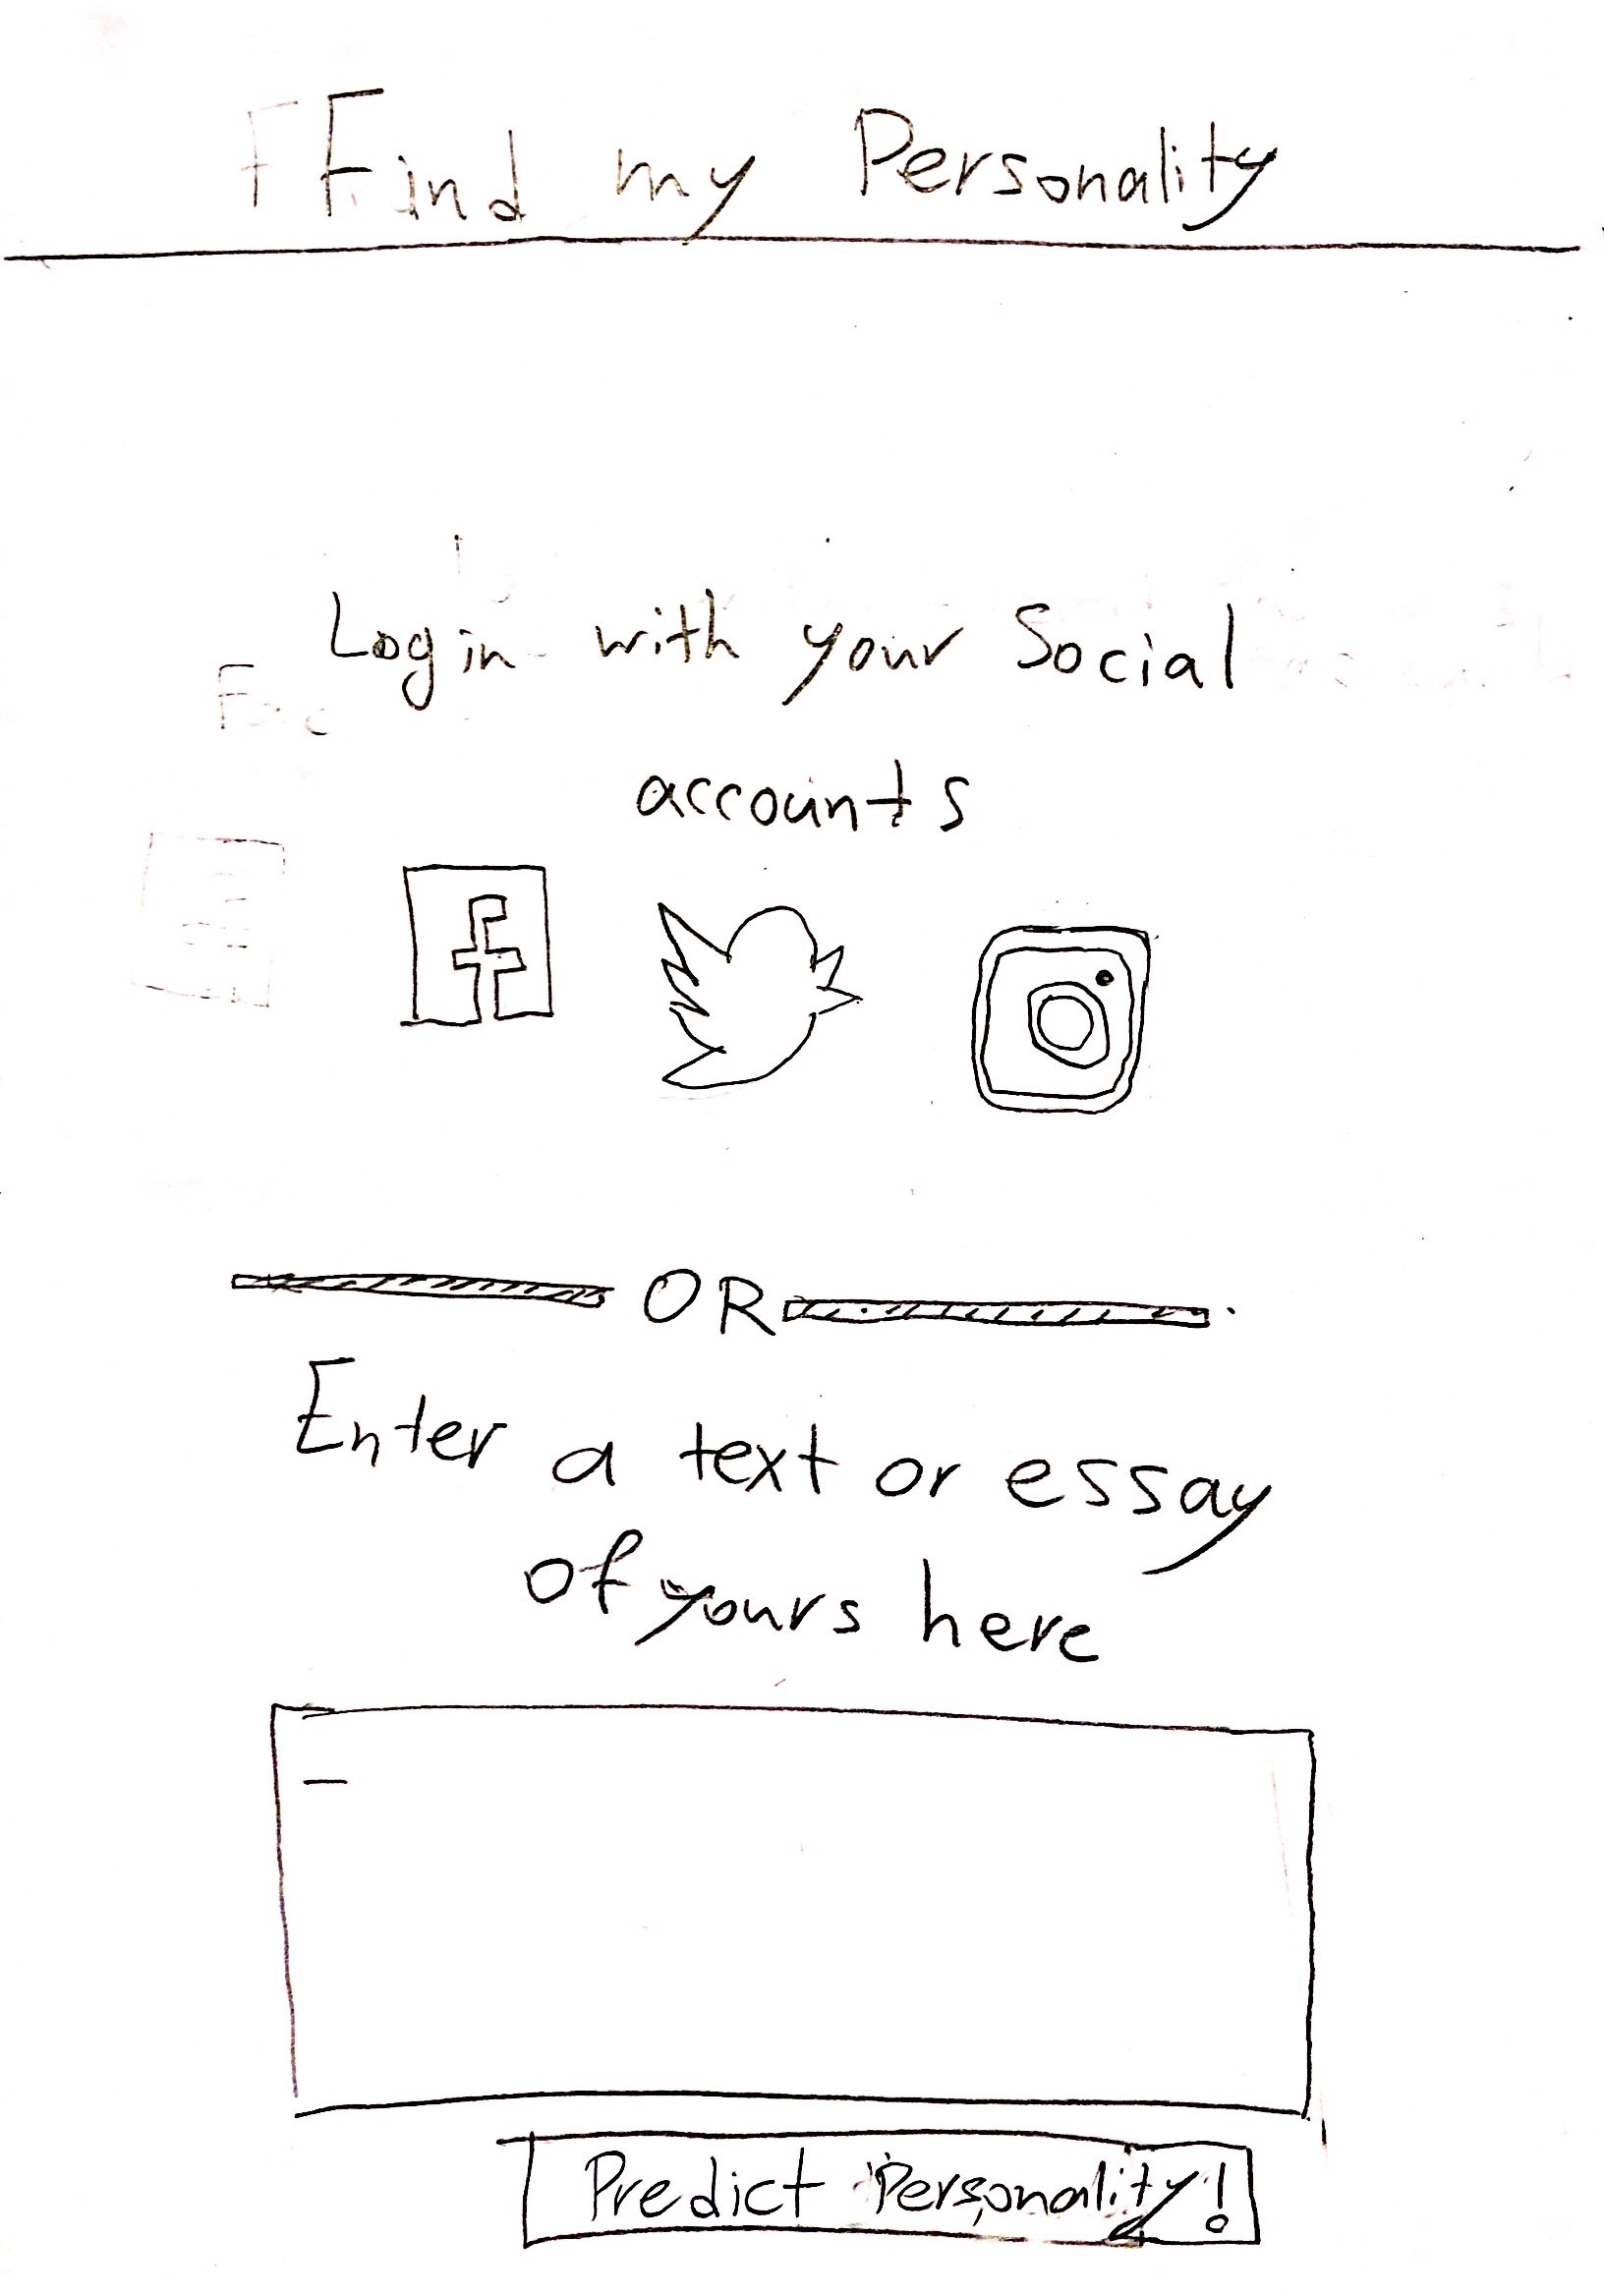 Find my Personality
Login with your Social
accounts
f
OR
Enter a text or essay
of yours here
Predict Personality!